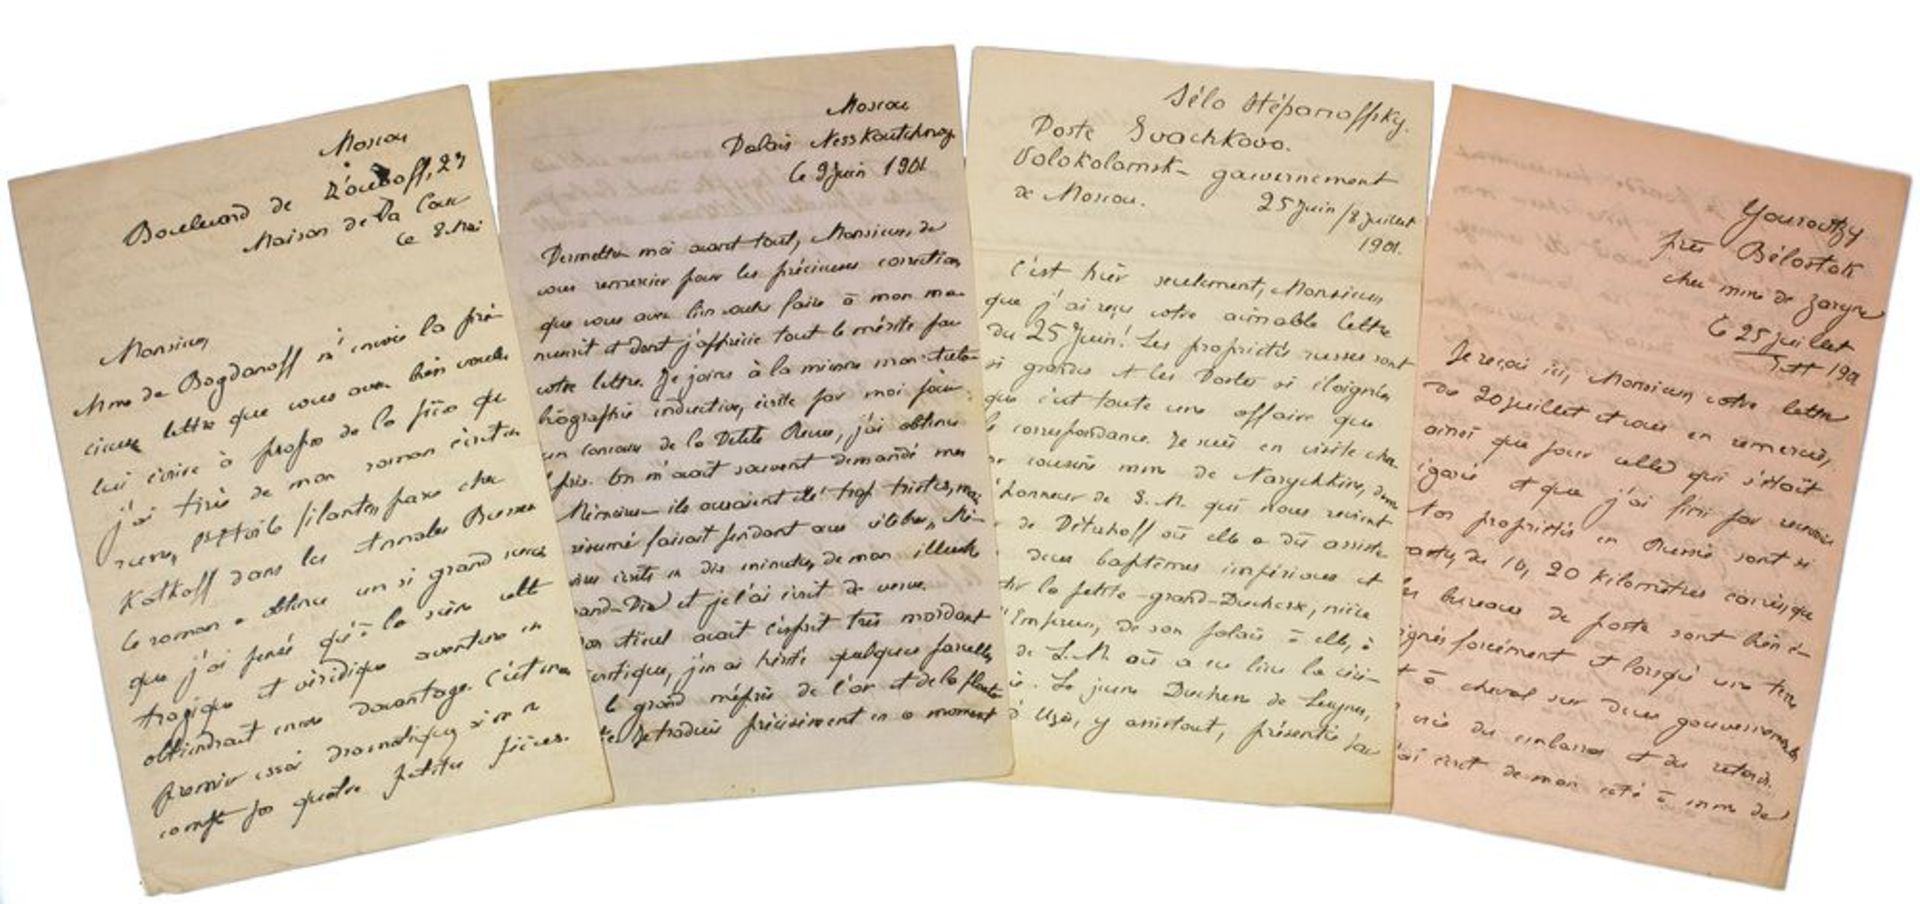 Moscou
Boulevard de Zouboff, 27
Maison de la Cour
Le 8 Mai
Monsieur,
Mme de Bogdanoff m'envoie la pré-
cieuse lettre que vous avez bien voulu
lui écrire à propos de la pièce que
j'ai tirée de mon roman écrit en
russe, Etoile filante, paru chez
Katkoff dans les Annales Russes
Le roman a obtenu un si grand succès
que j'ai pensé qu'à la scène cette
tragique et véridique aventure en
obtiendrait encore davantage. C'est mon
premier essai dramatique, si on ne
compte pas quatre petites pièces.
Moscou
Palais Nesskoutchnoy
Le 9 Juin 1901
Permettez moi avant tout, Monsieur, de
vous remercier pour les précieuses corrections
que vous avez bien voulu faire à mon ma-
nuscrit et dont j'apprécie tout le mérite par
votre lettre. Je joins à la mienne mon auto-
biographie inductive, écrite par moi pour
un concours de la Petite Revue, j'ai obtenu
prix. On m'avait souvent demandé mes
Mémoires ils auraient été trop tristes, mais
résumé faisait pendant aux célèbres Mé-
écrits en dix minutes, de mon illustre
Grand-Père et je l'ai écrit de verve.
avait l'esprit très mordant
j'en ai hérité quelques parcelles
le grand mépris de l'or et de la
Je traduis précisément en ce moment
Sélo Stépanoffsky.
Poste Svachkovo.
Volokolamsk - gouvernement
de Moscou.
25 Juin/8 juillet
1901.
C'est hier seulement, Monsieur
que j'ai reçu votre aimable lettre
du 25 Juin! Les propriétés russes sont
si grandes et les Postes si éloignées
que c'est toute une affaire que
la correspondance. Je suis en visite chez
cousine Mme de Narychkine, dame
d'honneur de S. M. qui nous revient
de Péterhoff où elle a dû assister
deux baptêmes impériaux et
la petite-grand-Duchesse, nièce
l'Empereur, de son palais à elle, à
de L. M. où a eu lieu la céré-
. Le jeune Duchesse de Luynes,
d'Uzès, y assistait, présentée par
Yourovtzy
près Bélostok
chez Mme de
Le 25 juillet
1901
Je reçois ici, Monsieur, votre lettre
du 20 juillet et vous en remercie,
ainsi que pour celle qui s'était
égarée et que j'ai fini par recevoir
propriétés en Russie sont si
de 10, 20 kilomètres carrés, que
les bureaux de poste sont bien é-
loignés forcément et lorsqu'une terre
est à cheval sur deux gouvernements
du embarras et du retard.
J'ai écrit de mon côté à Mme de